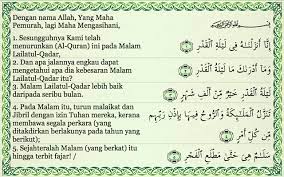 Dengan nama Allah, Yang Maha
Pemurah, lagi Maha Mengasihani,
1. Sesungguhnya Kami telah
menurunkan (Al-Quran) ini pada Malam
Lailatul-Qadar,
إِنَّا أَنْزَلْنَاهُ فِي لَيْلَةِ الْقَدْرِ
2. Dan apa jalannya engkau dapat
mengetahui apa dia kebesaran Malam
Lailatul-Qadar itu?
وَمَا أَدْرَاكَ مَا لَيْلَةُ الْقَدْرِ
3. Malam Lailatul-Qadar lebih baik
daripada seribu bulan.
لَيْلَةُ الْقَدْرِ خَيْرٌ مِنْ أَلْفِ شَهْرٍ
4. Pada Malam itu, turun malaikat dan
Jibril dengan izin Tuhan mereka, kerana
membawa segala perkara (yang
ditakdirkan berlakunya pada tahun yang
berikut);
تَنَزَّلُ الْمَلَائِكَةُ وَالرُّوحُ فِيهَا بِإِذْنِ رَبِّهِمْ
مِنْ كُلِّ أَمْرٍ
5. Sejahteralah Malam (yang berkat) itu
hingga terbit fajar! /
سَلَامٌ هِيَ حَتَّى مَطْلَعِ الْفَجْرِ